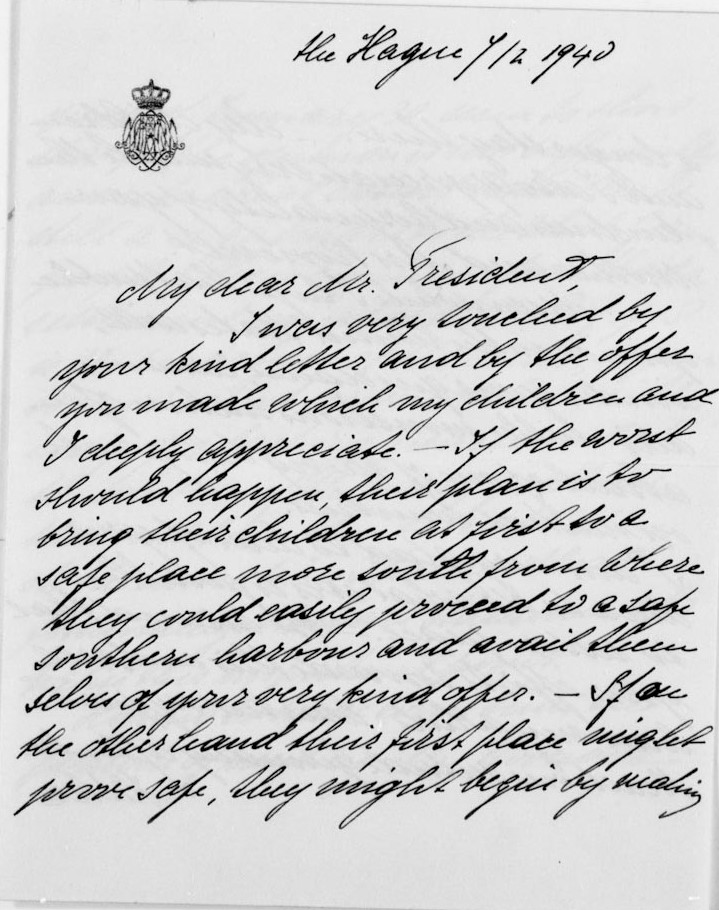 the Hague 7/2 1940
My dear Mr. President,
I was very touched by
your kind letter and by the offer
you made which my children and
I deeply appreciate. — If the worst
should happen, their plan is to
bring their children at first to a
safe place more south from where
they could easily proceed to a safe
southern harbour and avail them
selves of your very kind offer. — If on
the other hand their first place might
prove safe, they might begin by making